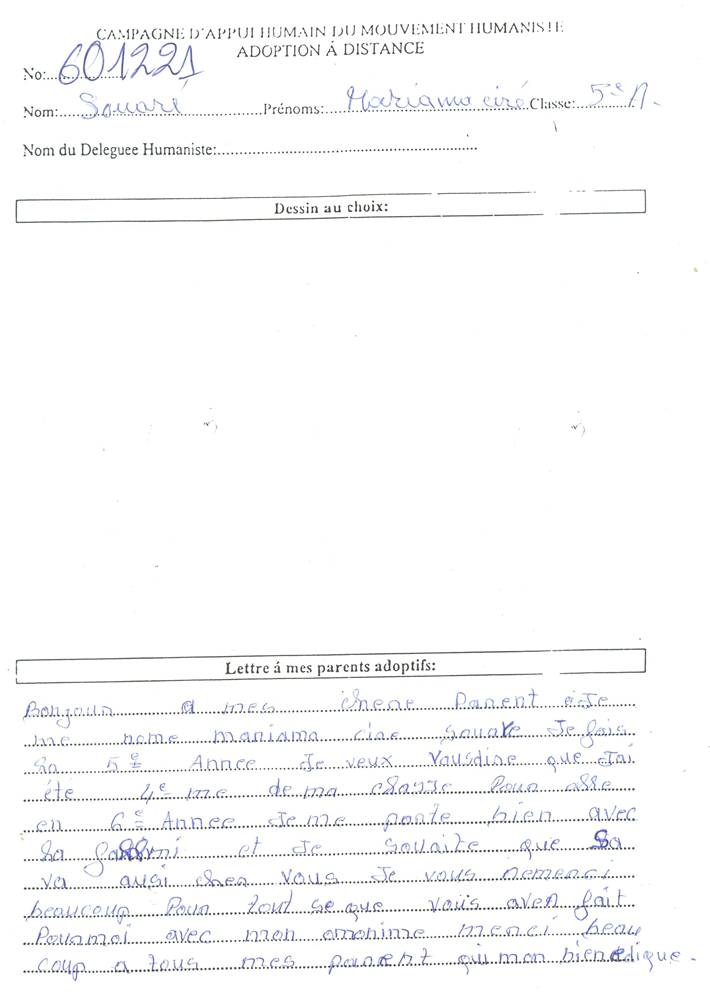 CAMPAGNE D'APPUI HUMAIN DU MOUVEMENT HUMANISTE
ADOPTION Á DISTANCE
No:....601221
Nom:....Souaré....Prénoms:....Mariama ciré Classe:....5e A.
Nom du Deleguee Humaniste:....
Dessin au choix:
Lettre á mes parents adoptifs:
Bonjour a mes chere Parent Je
me nome mariama cire souare Je fais
la 5e Annee Je veux vous dire que Jai
éte 4e me de ma classe Pour alle
en 6e Annee Je me porte bien avec
la et Je souaite que Sa
va ausi chez vous Je vous remerci
beaucoup Pour tout se que vous avez fait
Pour moi avec mon omonime merci beau
coup a tous mes parent qui mon bien